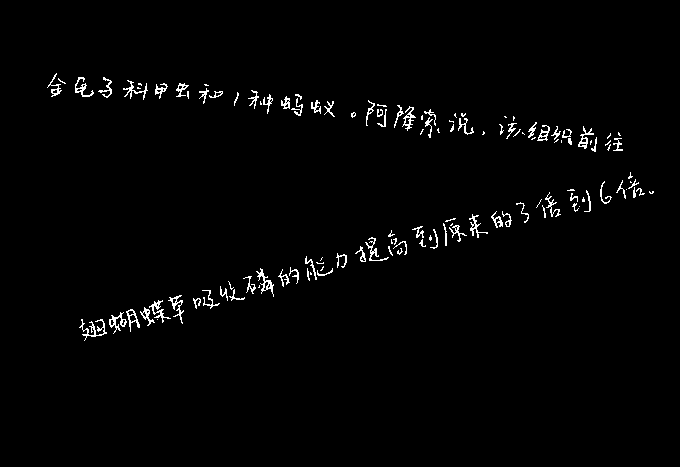 金龟子科甲虫和1种蚂蚁。阿隆索说,该组织前往
翅蝴蝶草吸收磷的能力提高到原来的3倍到6倍。